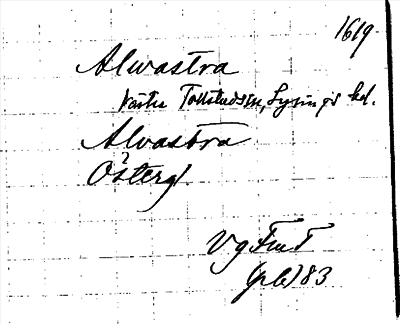 1619
Alvastra
Västra Tollstadssn, Lysings hd.
Alvastra
Österg
VgFmT
(pl) 83